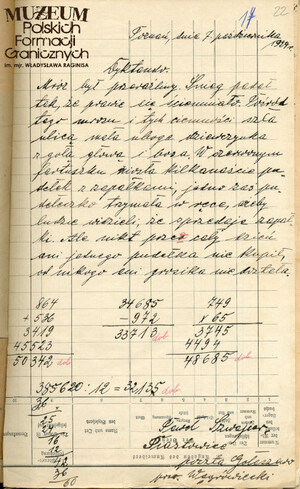 MUZEUM
Polskich
Formacji
Granicznych
im. mjr. WŁADYSŁAWA RAGINISA
17
22
Poznań, dnia 7 października
1934 r.
Dyktando.
Mróz był przeraźliwy. Śnieg padał
tak, że prawie się ściemniało. Pośród
tego mrozu i tych ciemności szła
ulicą mała uboga dziewczynka
z gołą głową i bosa. W czerwonym
fartuszku niosła kilkanaście pu-
dełek z zapałkami, jedno zaś pu-
dełeczko trzymała w ręce, żeby
ludzie widzieli, że sprzedaje zapał-
ki. Ale nikt przez cały dzień
ani jednego pudełka nie kupił,
od nikogo ani grosika nie dostała.
864 34685 749
+ 536 - 972 x 65
3419 33713 dob 3745
45523 4494
50342 dob 48685 dob
385620 : 12 = 32,135 dob
36
25
24
16
12
42
36
60
poczta
pow. Wągrowiecki